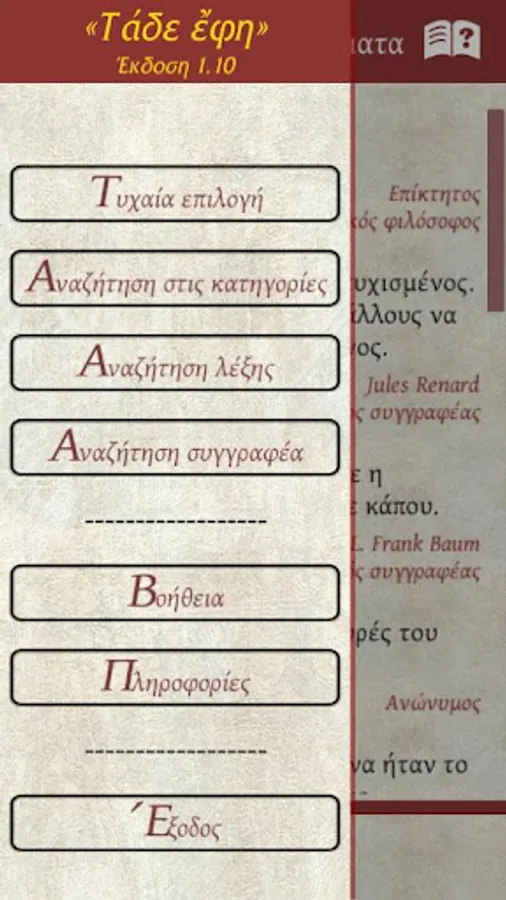 «Τάδε ἔφη»
Έκδοση 1.10
Τυχαία επιλογή
Αναζήτηση στις κατηγορίες
Αναζήτηση λέξης
Αναζήτηση συγγραφέα
------------------
Βοήθεια
Πληροφορίες
------------------
Έξοδος
Επίκτητος
φιλόσοφος
άλλους να
Jules Renard
συγγραφέας
η
κάπου.
L. Frank Baum
συγγραφέας
του
Ανώνυμος
να ήταν το